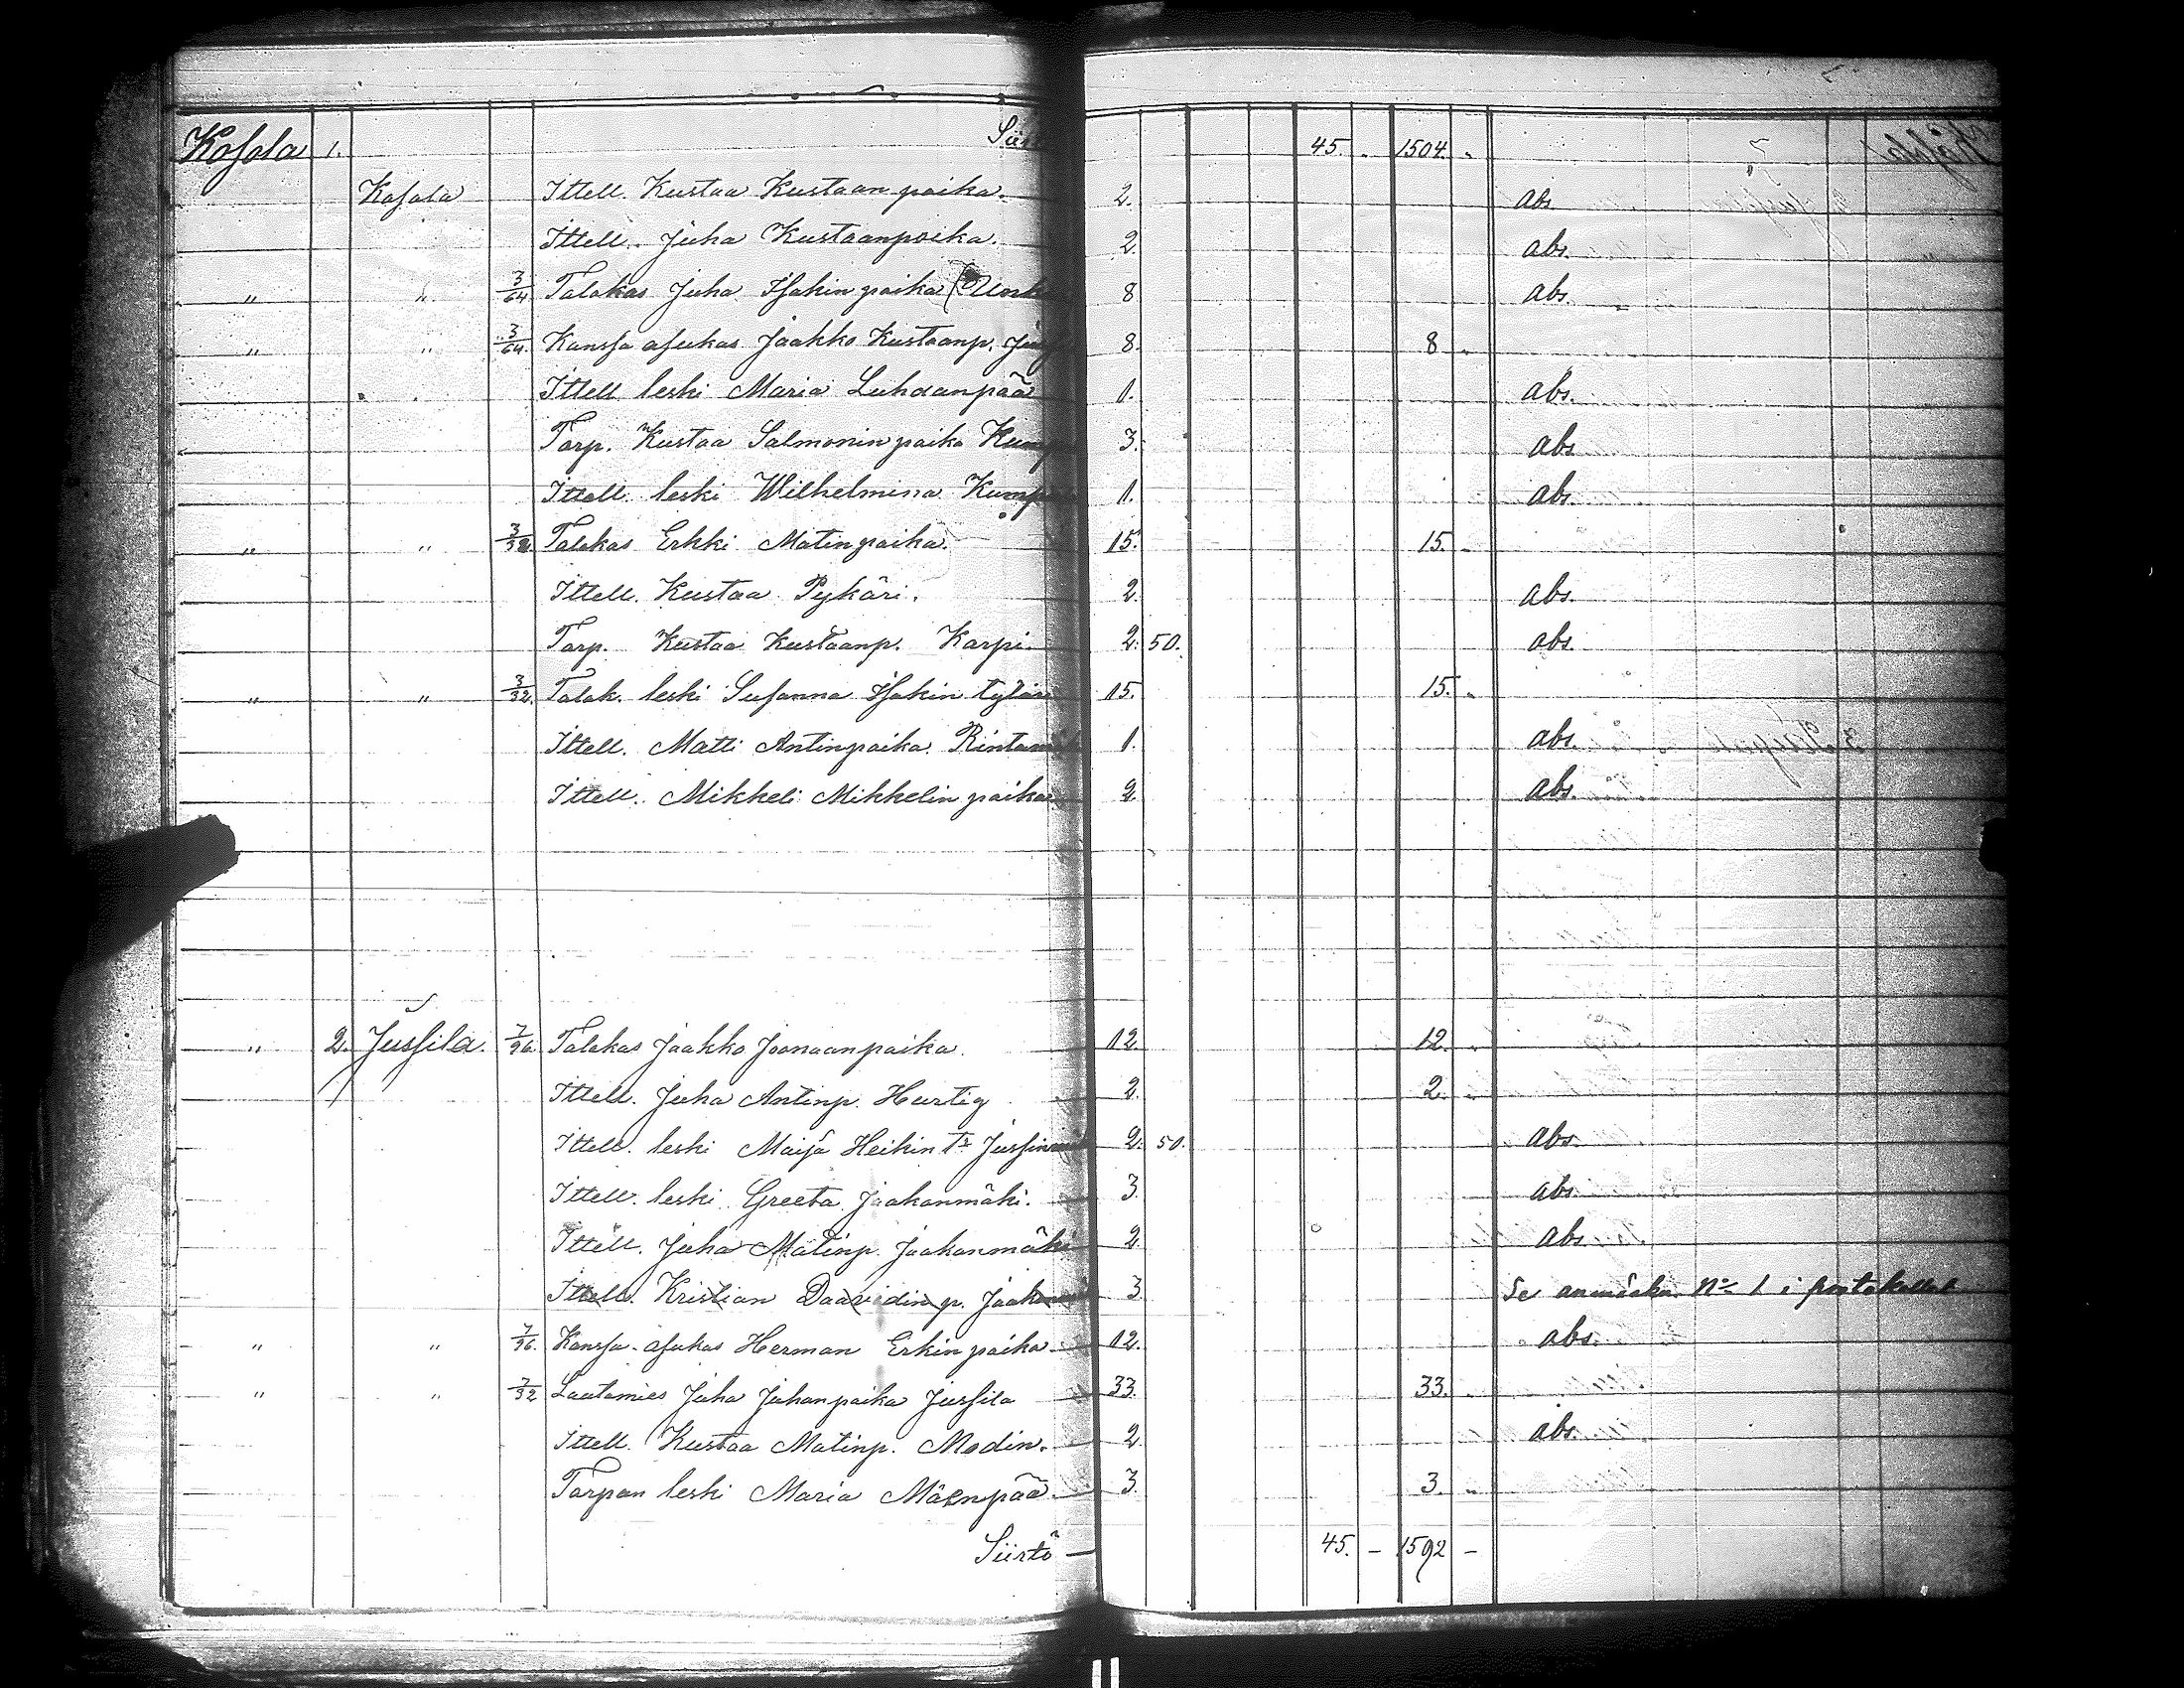 Kosola 1. 45. 1504.
Kosola Ittell. Kustaa Kustaanpoika. 2. abs.
Ittell. Juha Kustaanpoika. 2. abs.
" " 3/64 Talokas Juha Isakinpoika 8 abs.
" " 3/64. Kanssa asukas Jaakko Kustaanp. 8. 8
Ittell leski Maria Luhdanpää 1. abs.
Torp. Kustaa Salmoninpoika 3. abs
Ittell. leski Wilhelmina 1. abs.
" " 3/32. Talokas Erkki Matinpoika. 15. 15.
Ittell. Kustaa Pykäri. 2. abs.
Torp. Kustaa Kustaanp. Karpi. 2. 50. abs.
" " 3/32. Talok. leski Susanna Isakin tytär 15. 15.
Ittell. Matti Antinpoika 1. abs.
Ittell. Mikkeli Mikkelin poika 2 abs.
" 2. Jussila. 7/96. Talokas Jaakko Joonaanpoika. 12. 12.
Ittell. Juha Antinp. Hurtig 2. 2.
Ittell. leski Maija Heikin tr 2. 50. abs.
Ittell. leski Greeta Jaakonmäki. 3 abs.
Ittell. Juha Matinp. Jaakonmäki 2 abs.
Ittell. Kristian Daavidin p. 3 Se anmärkn. No 1 i protokollet
" " 7/96. Kanssa-asukas Herman Erkinpoika 12. abs.
" " 7/32 Lautamies Juha Juhanpoika Jussila 33. 33.
Ittell. Kustaa Matinp. Modin. 2 abs.
Torpan leski Maria Mäenpää. 3. 3.
Siirtö — 45. – 1592 –